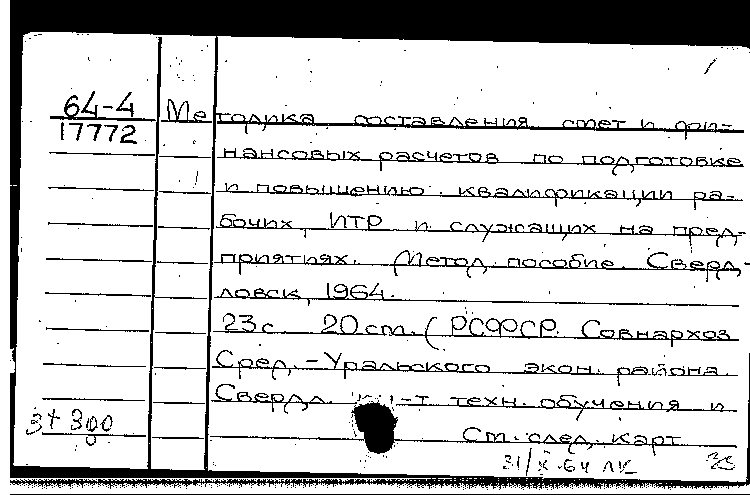 64-4
17772
Методика составления смет и фи-
нансовых расчетов по подготовке
и повышению квалификации ра-
бочих, ИТР и служащих на пред-
приятиях. Метод. пособие. Сверд-
ловск, 1964.
23с. 20см. (РСФСР. Совнархоз
Сред.-Уральского экон. района.
Свердл. ин-т техн. обучения и
См. след. карт
3т 300
31/X-64 ЛК